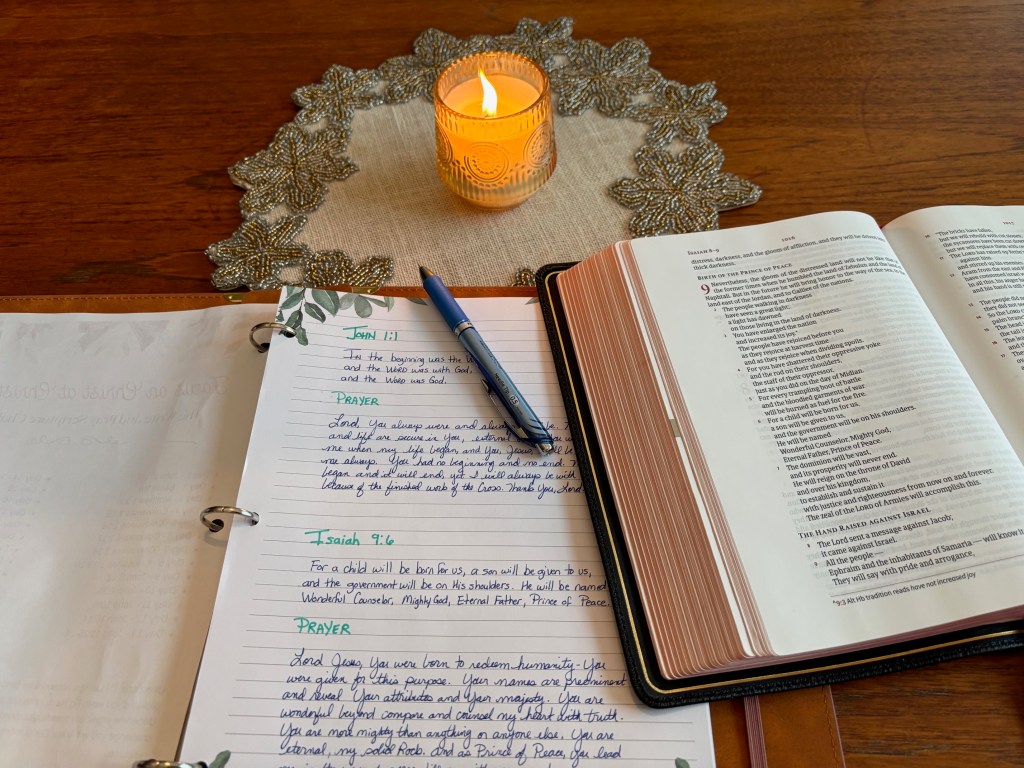 JOHN 1:1
IN the beginning was the
and the WORD was with God,
and the WORD was God.
PRAYER
Lord, You always were and always be.
and life are secure in You, eternal
me when my life began, and You, Jesus be
me always. You had no beginning and no end.
began and it will end, yet I will always be with
because of the finished work of the Cross. Thank You, Lord
Isaiah 9:6
For a child will be born for us, a son will be given to us,
and the government will be on His shoulders. He will be named
Wonderful Counselor, Mighty God, Eternal Father, Prince of Peace.
PRAYER
Lord Jesus, You were born to redeem humanity - You
were given for this purpose. Your names are preeminent
and reveal Your attributes and Your majesty. You are
wonderful beyond compare and counsel my heart with truth.
You are more mighty than anything or anyone else. You are
eternal, my solid Rock. And as Prince of Peace, You lead
ISAIAH 8–9
1026
distress, darkness, and the gloom of affliction, and they will be driven
thick darkness.
BIRTH OF THE PRINCE OF PEACE
9 Nevertheless, the gloom of the distressed land will not be like that
the former times when he humbled the land of Zebulun and the land
Naphtali. But in the future he will bring honor to the way of the sea,
land east of the Jordan, and to Galilee of the nations.
2 The people walking in darkness
have seen a great light;
a light has dawned
on those living in the land of darkness.
3 You have enlarged the nation
and increased its joy.
The people have rejoiced before you
as they rejoice at harvest time
and as they rejoice when dividing spoils.
4 For you have shattered their oppressive yoke
and the rod on their shoulders,
the staff of their oppressor,
just as you did on the day of Midian.
5 For every trampling boot of battle
and the bloodied garments of war
will be burned as fuel for the fire.
6 For a child will be born for us,
a son will be given to us,
and the government will be on his shoulders.
He will be named
Wonderful Counselor, Mighty God,
Eternal Father, Prince of Peace.
7 The dominion will be vast,
and its prosperity will never end.
He will reign on the throne of David
and over his kingdom,
to establish and sustain it
with justice and righteousness from now on and forever.
The zeal of the LORD of Armies will accomplish this.
THE HAND RAISED AGAINST ISRAEL
8 The Lord sent a message against Jacob;
it came against Israel.
9 All the people —
Ephraim and the inhabitants of Samaria — will know it
They will say with pride and arrogance,
9:3 Alt Hb tradition reads have not increased joy
10 The bricks have fallen,
but we will rebuild with cut stones;
the sycamores have been cut down,
but we will replace them with
11 The LORD has raised up
against him
and stirred up his enemies.